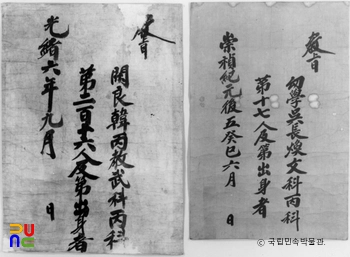 敎旨
閑良韓丙敎武科丙科
第二百十六人及第出身者
光緖六年九月 日
敎旨
幼學吳長煥文科丙科
第十七人及第出身者
崇禎紀元後五癸巳六月 日
© 국립민속박물관